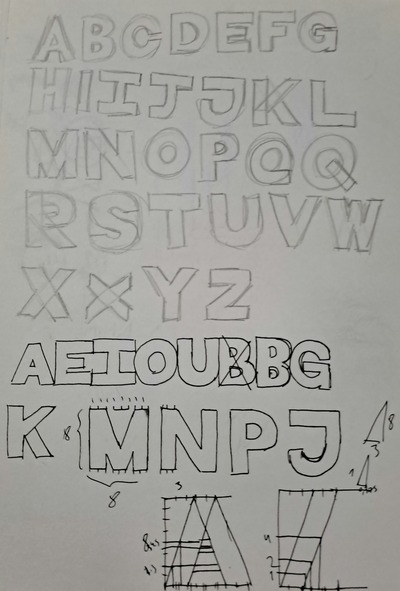 ABCDEFG
HIIJJKL
MNOPQQ
RSTUVW
XXYZ
AEIOUBBG
K 8 MNPJ 8
3
8
3
1
4
2
1